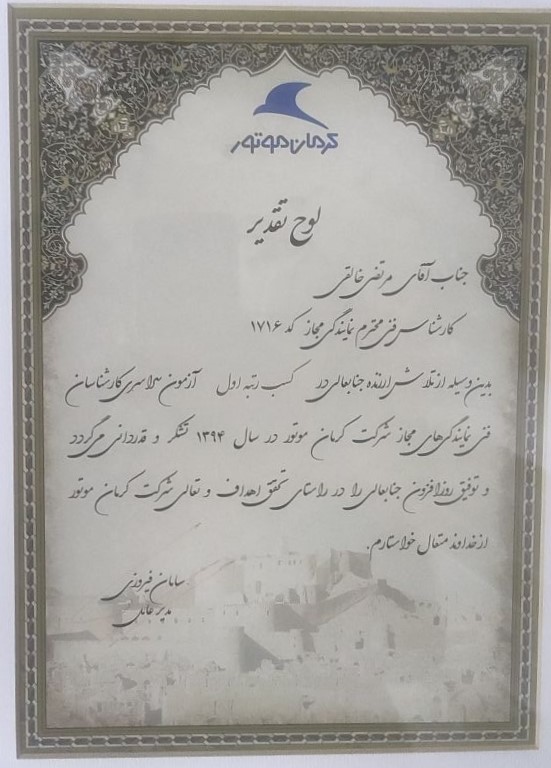 کرمان موتور
لوح تقدیر
جناب آقای مرتضی خالقی
کارشناس فنی محترم نمایندگی مجاز کد ۱۷۱۶
بدین وسیله از تلاش ارزنده جنابعالی در کسب رتبه اول آزمون سراسری کارشناسان
فنی نمایندگی‌های مجاز شرکت کرمان موتور در سال ۱۳۹۴ تشکر و قدردانی می‌گردد
و توفیق روزافزون جنابعالی را در راستای تحقق اهداف و تعالی شرکت کرمان موتور
از خداوند متعال خواستارم.
سامان فیروزی
مدیر عامل